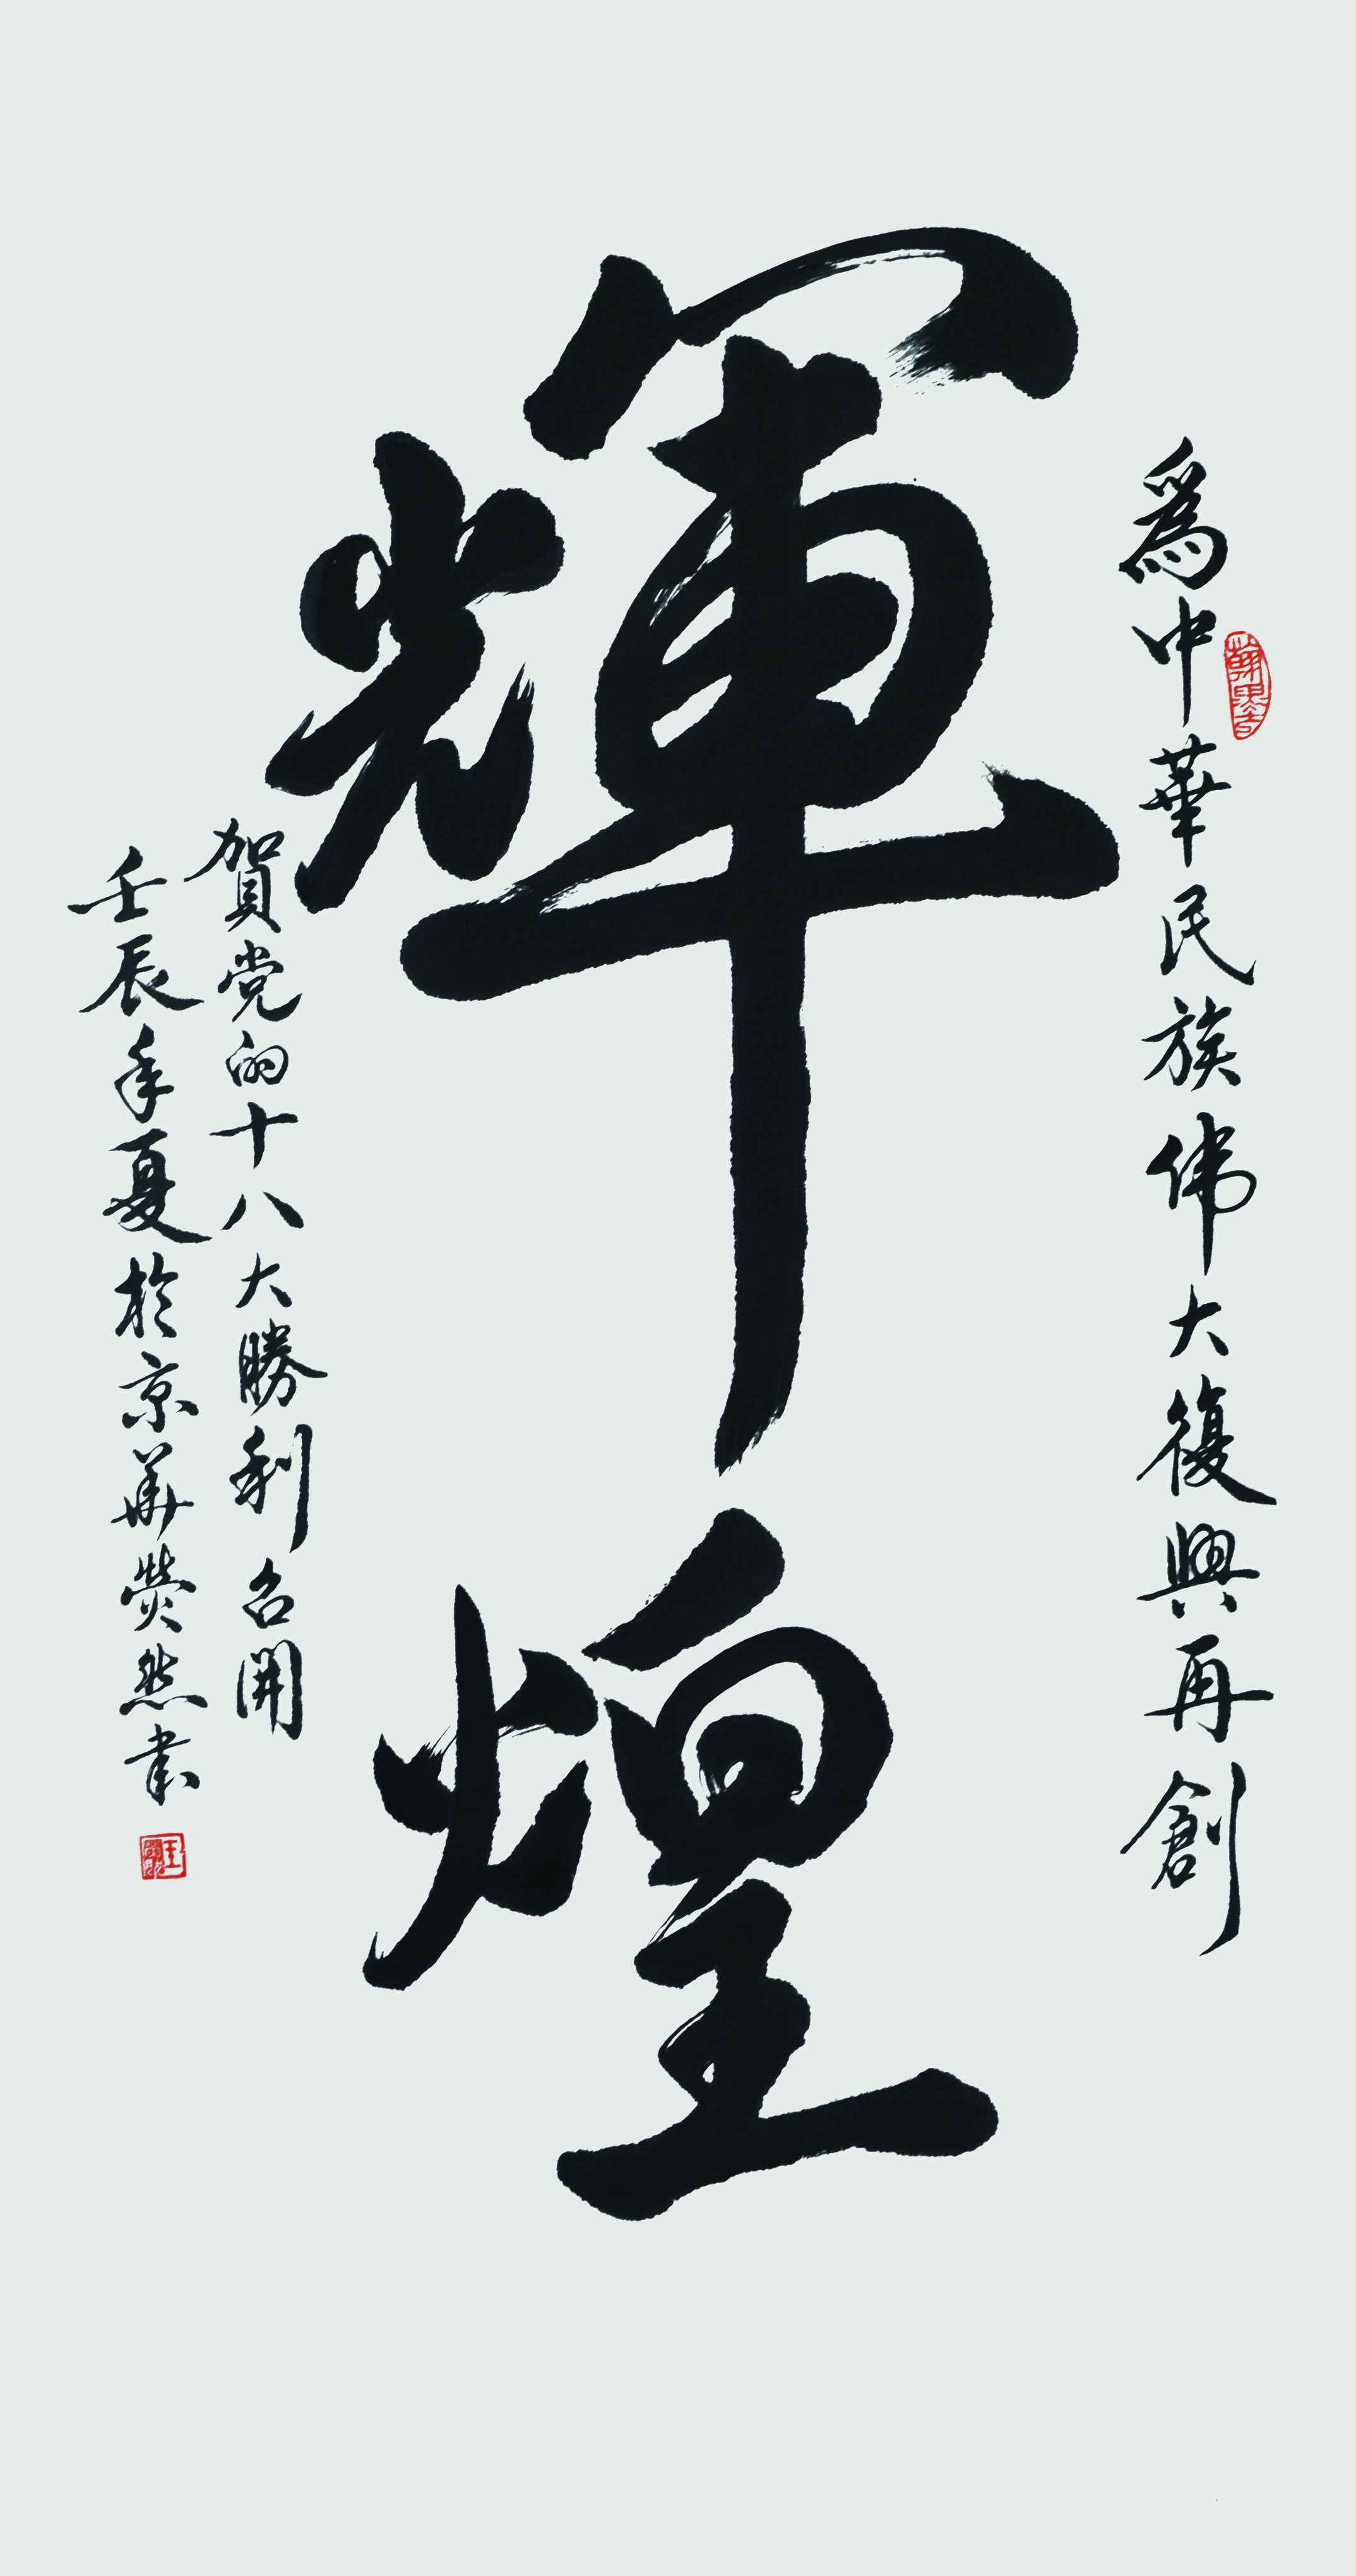 爲中華民族偉大復興再創
輝煌
賀党的十八大勝利召開
壬辰年夏於京華熒然書